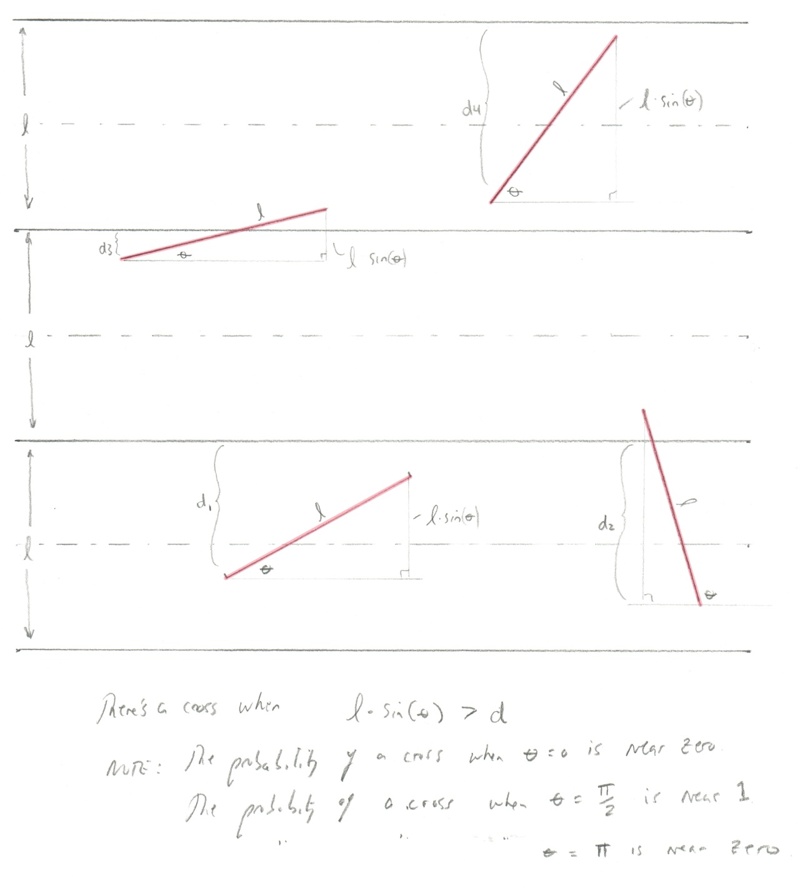 d4
l
l·sin(θ)
l
l
d3
θ
θ
l sin(θ)
l
l
d1
l
l·sin(θ)
θ
d2
l
θ
l
There's a cross when l·sin(θ) > d
NOTE: The probability of a cross when θ=0 is near zero.
The probability of a cross when θ = π/2 is near 1
" " "
θ = π is near zero